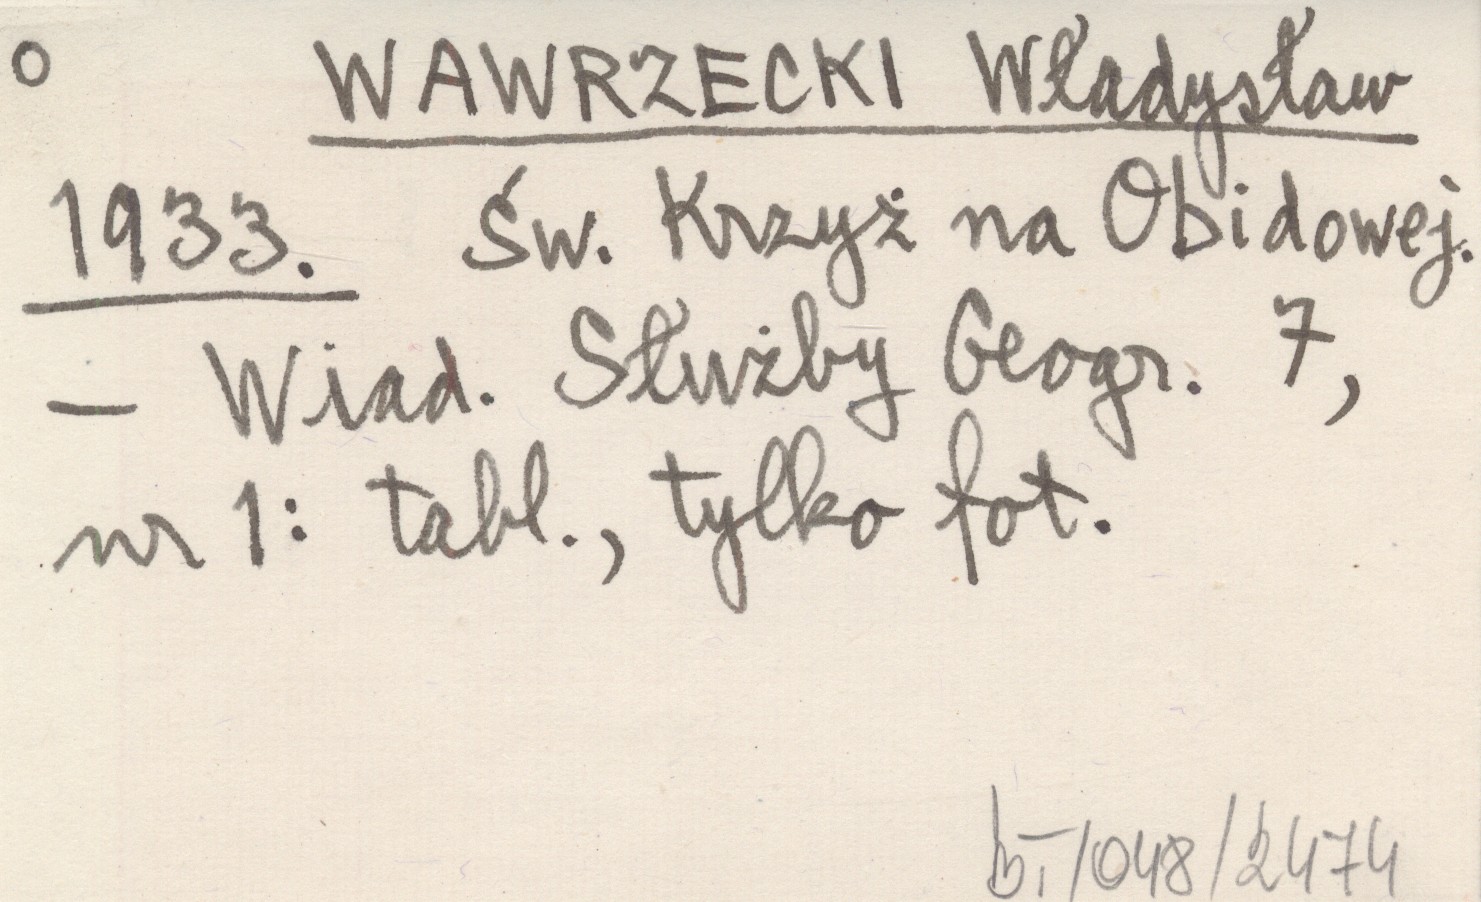 o WAWRZECKI Władysław
1933. Św. Krzyż na Obidowej.
— Wiad. Służby Geogr. 7,
nr 1: tabl., tylko fot.
b1/048/2474